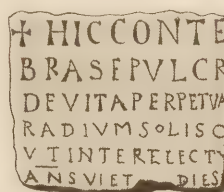 ✝ HICCONTE
BRASEPVLCR
DEVITAPERPETVA
RADIVMSOLISC
VTINTERTELECTV
ANSVIET DIES